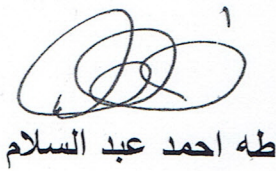 أ
طه احمد عبد السلام